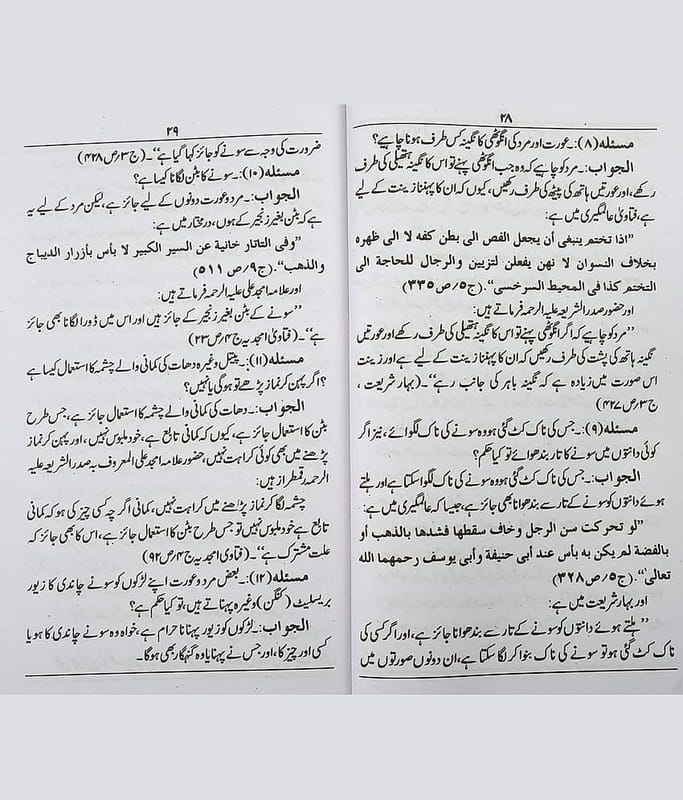 ۲۸
مسئلہ (۸):۔ عورت اور مرد کی انگوٹھی کا نگینہ کس طرف ہونا چاہیے؟
الجواب:۔ مرد کو چاہیے کہ وہ جب انگوٹھی پہنے تو اس کا نگینہ ہتھیلی کی طرف
رکھے، اور عورتیں ہاتھ کی پیٹھ کی طرف رکھیں، کیوں کہ ان کا پہننا زینت کے لیے
ہے، فتاویٰ عالمگیری میں ہے:
”اذا تختم ينبغى أن يجعل الفص الى بطن كفه لا الى ظهره
بخلاف النسوان لا نهن يفعلن لتزيين والرجال للحاجة الى
التختم كذا فى المحيط السرخسى“۔ (ج۵/ص ۳۳۵)
اور حضور صدر الشریعہ علیہ الرحمہ فرماتے ہیں:
”مرد کو چاہیے کہ اگر انگوٹھی پہنے تو اس کا نگینہ ہتھیلی کی طرف رکھے اور عورتیں
نگینہ ہاتھ کی پشت کی طرف رکھیں کہ ان کا پہننا زینت کے لیے ہے اور زینت
اس صورت میں زیادہ ہے کہ نگینہ باہر کی جانب رہے“۔ (بہار شریعت،
ج۳/ص ۴۲۷)
مسئلہ (۹):۔ جس کی ناک کٹ گئی ہو وہ سونے کی ناک لگوائے، نیز اگر
کوئی دانتوں میں سونے کا تار بندھوائے تو کیا حکم؟
الجواب:۔ جس کی ناک کٹ گئی ہو وہ سونے کی ناک لگوا سکتا ہے اور ہلتے
ہوئے دانتوں کو سونے کے تار سے بندھوانا بھی جائز ہے، جیسا کہ عالمگیری میں ہے:
”لو تحركت سن الرجل وخاف سقطها فشدها بالذهب أو
بالفضة لم يكن به بأس عند أبى حنيفة وأبى يوسف رحمهما الله
تعالى“۔ (ج۵/ص ۳۲۸)
اور بہار شریعت میں ہے:
”ہلتے ہوئے دانتوں کو سونے کے تار سے بندھوانا جائز ہے، اور اگر کسی کی
ناک کٹ گئی ہو تو سونے کی ناک بنوا کر لگا سکتا ہے، ان دونوں صورتوں میں
۲۹
ضرورت کی وجہ سے سونے کو جائز کہا گیا ہے“۔ (ج۳/ص ۴۲۸)
مسئلہ (۱۰):۔ سونے کا بٹن لگانا کیسا ہے؟
الجواب:۔ مرد و عورت دونوں کے لیے جائز ہے، لیکن مرد کے لیے یہ
ہے کہ بٹن بغیر زنجیر کے ہوں، در مختار میں ہے:
”وفى التاتار خانية عن السير الكبير لا بأس بأزرار الديباج
والذهب“۔ (ج۹/ص ۵۱۱)
اور علامہ امجد علی علیہ الرحمہ فرماتے ہیں:
”سونے کے بٹن بغیر زنجیر کے جائز ہیں اور اس میں ڈورا لگانا بھی جائز
ہے“۔ (فتاویٰ امجدیہ ج۴/ص ۲۳)
مسئلہ (۱۱):۔ پیتل وغیرہ دھات کی کمانی والے چشمہ کا استعمال کیسا ہے
؟ اگر پہن کر نماز پڑھے تو ہوگی یا نہیں؟
الجواب:۔ دھات کی کمانی والے چشمہ کا استعمال جائز ہے، جس طرح
بٹن کا استعمال جائز ہے، کیوں کہ کمانی تابع ہے، خود ملبوس نہیں، اور پہن کر نماز
پڑھنے میں بھی کوئی کراہت نہیں، حضور علامہ امجد علی المعروف بہ صدر الشریعہ علیہ
الرحمہ رقمطراز ہیں:
چشمہ لگا کر نماز پڑھنے میں کراہت نہیں، کمانی اگرچہ کسی چیز کی ہو کہ کمانی
تابع ہے خود ملبوس نہیں تو جس طرح بٹن کا استعمال جائز ہے، اس کا بھی جائز کہ
علت مشترک ہے“۔ (فتاویٰ امجدیہ ج۴/ص ۹۲)
مسئلہ (۱۲):۔ بعض مرد و عورت اپنے لڑکوں کو سونے چاندی کا زیور
بریسلیٹ (کنگن) وغیرہ پہناتے ہیں، تو کیا حکم ہے؟
الجواب:۔ لڑکوں کو زیور پہنانا حرام ہے، خواہ وہ سونے چاندی کا ہو یا
کسی اور چیز کا، اور جس نے پہنایا وہ گنہگار بھی ہوگا۔